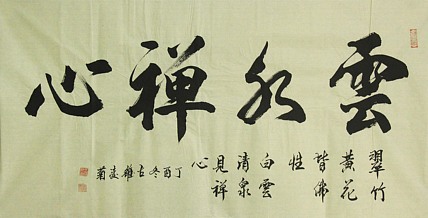 雲水禅心
翠竹
黃花
皆佛
性
白雲
清泉
見禅
心
丁酉冬古雍凌菊